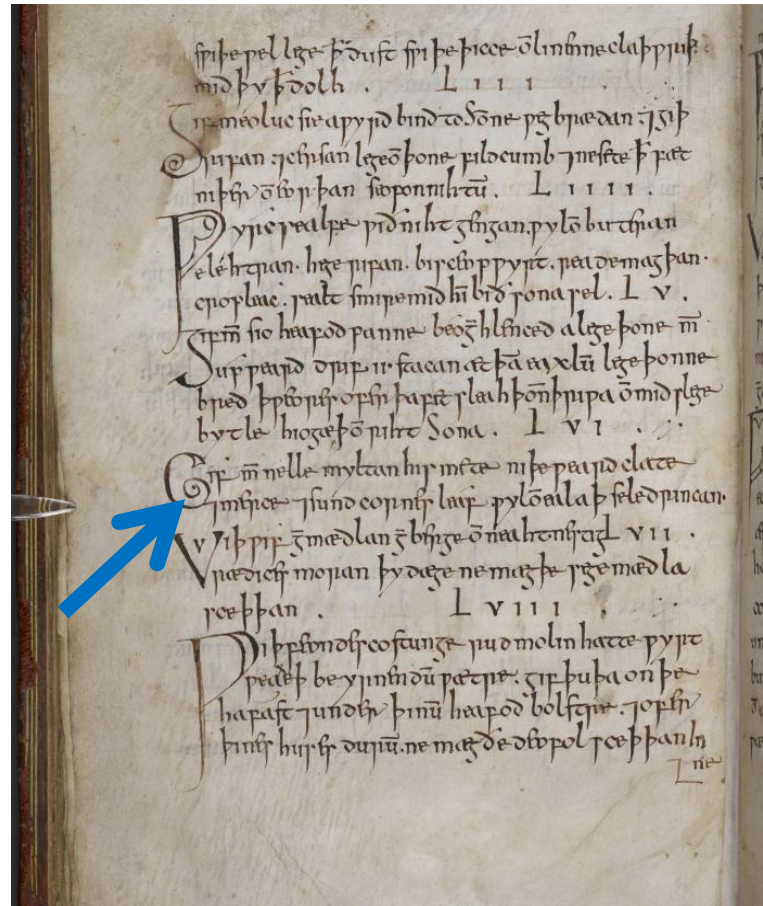 spiþe pel lege ꝥ dust spiþe þicce oн linenne claþ ƿriþ
mid þy ꝥ dolh . L I I I
Gif meoluc sie aƿyrd bind tosomne ƿegbrædan ⁊ giþ
rifan ⁊ cersan lege oñ þone fildcumb ⁊ ne sete ꝥ fæt
niþer oñ eorþan seofon nihtū . L I I I I .
Ƿyrc sealfe ƿið nihtgengan . ƿyl oñ buteran
elehtran . hegerifan . bisceopƿyrt . reademagþan .
cropleac . sealt smire mid hī bið sona sel . L V .
Gif m̄ sie heafodpanne beo ḡhlenced alege þone m̄
upƿeard drif II stacan æt þā eaxlū lege þonne
bred þƿeores ofer þa fet sleah þoñ þriƿa oñ mid slege
bytle hio gæþ oñ riht sona . L V I .
Gif m̄ nelle myltan his mete niþeƿeard clate
⁊ sundcornes leaf ƿyl oñ ealaþ sele drincan .
Ƿiþ ƿif ḡmædlan ḡberge oñ neahtnestig L V I I .
rædices moran þy dæge ne mæg þe se gemædla
sceþþan . L V I I I .
Ƿiþ feondes costunge rudmolin hatte ƿyrt
ƿeaxeþ be yrnendū ƿætre . gif þu þa on þe
hafast ⁊ under þinū heafodbolstre . ⁊ ofer
þines huses durū . ne mæg ðe deofol sceþþan in
ne